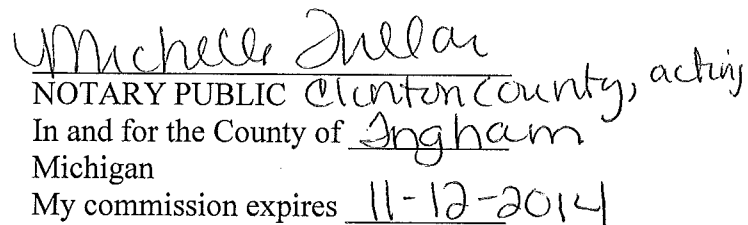 Michelle
NOTARY PUBLIC Clinton County, acting
In and for the County of Ingham
Michigan
My commission expires 11-12-2014